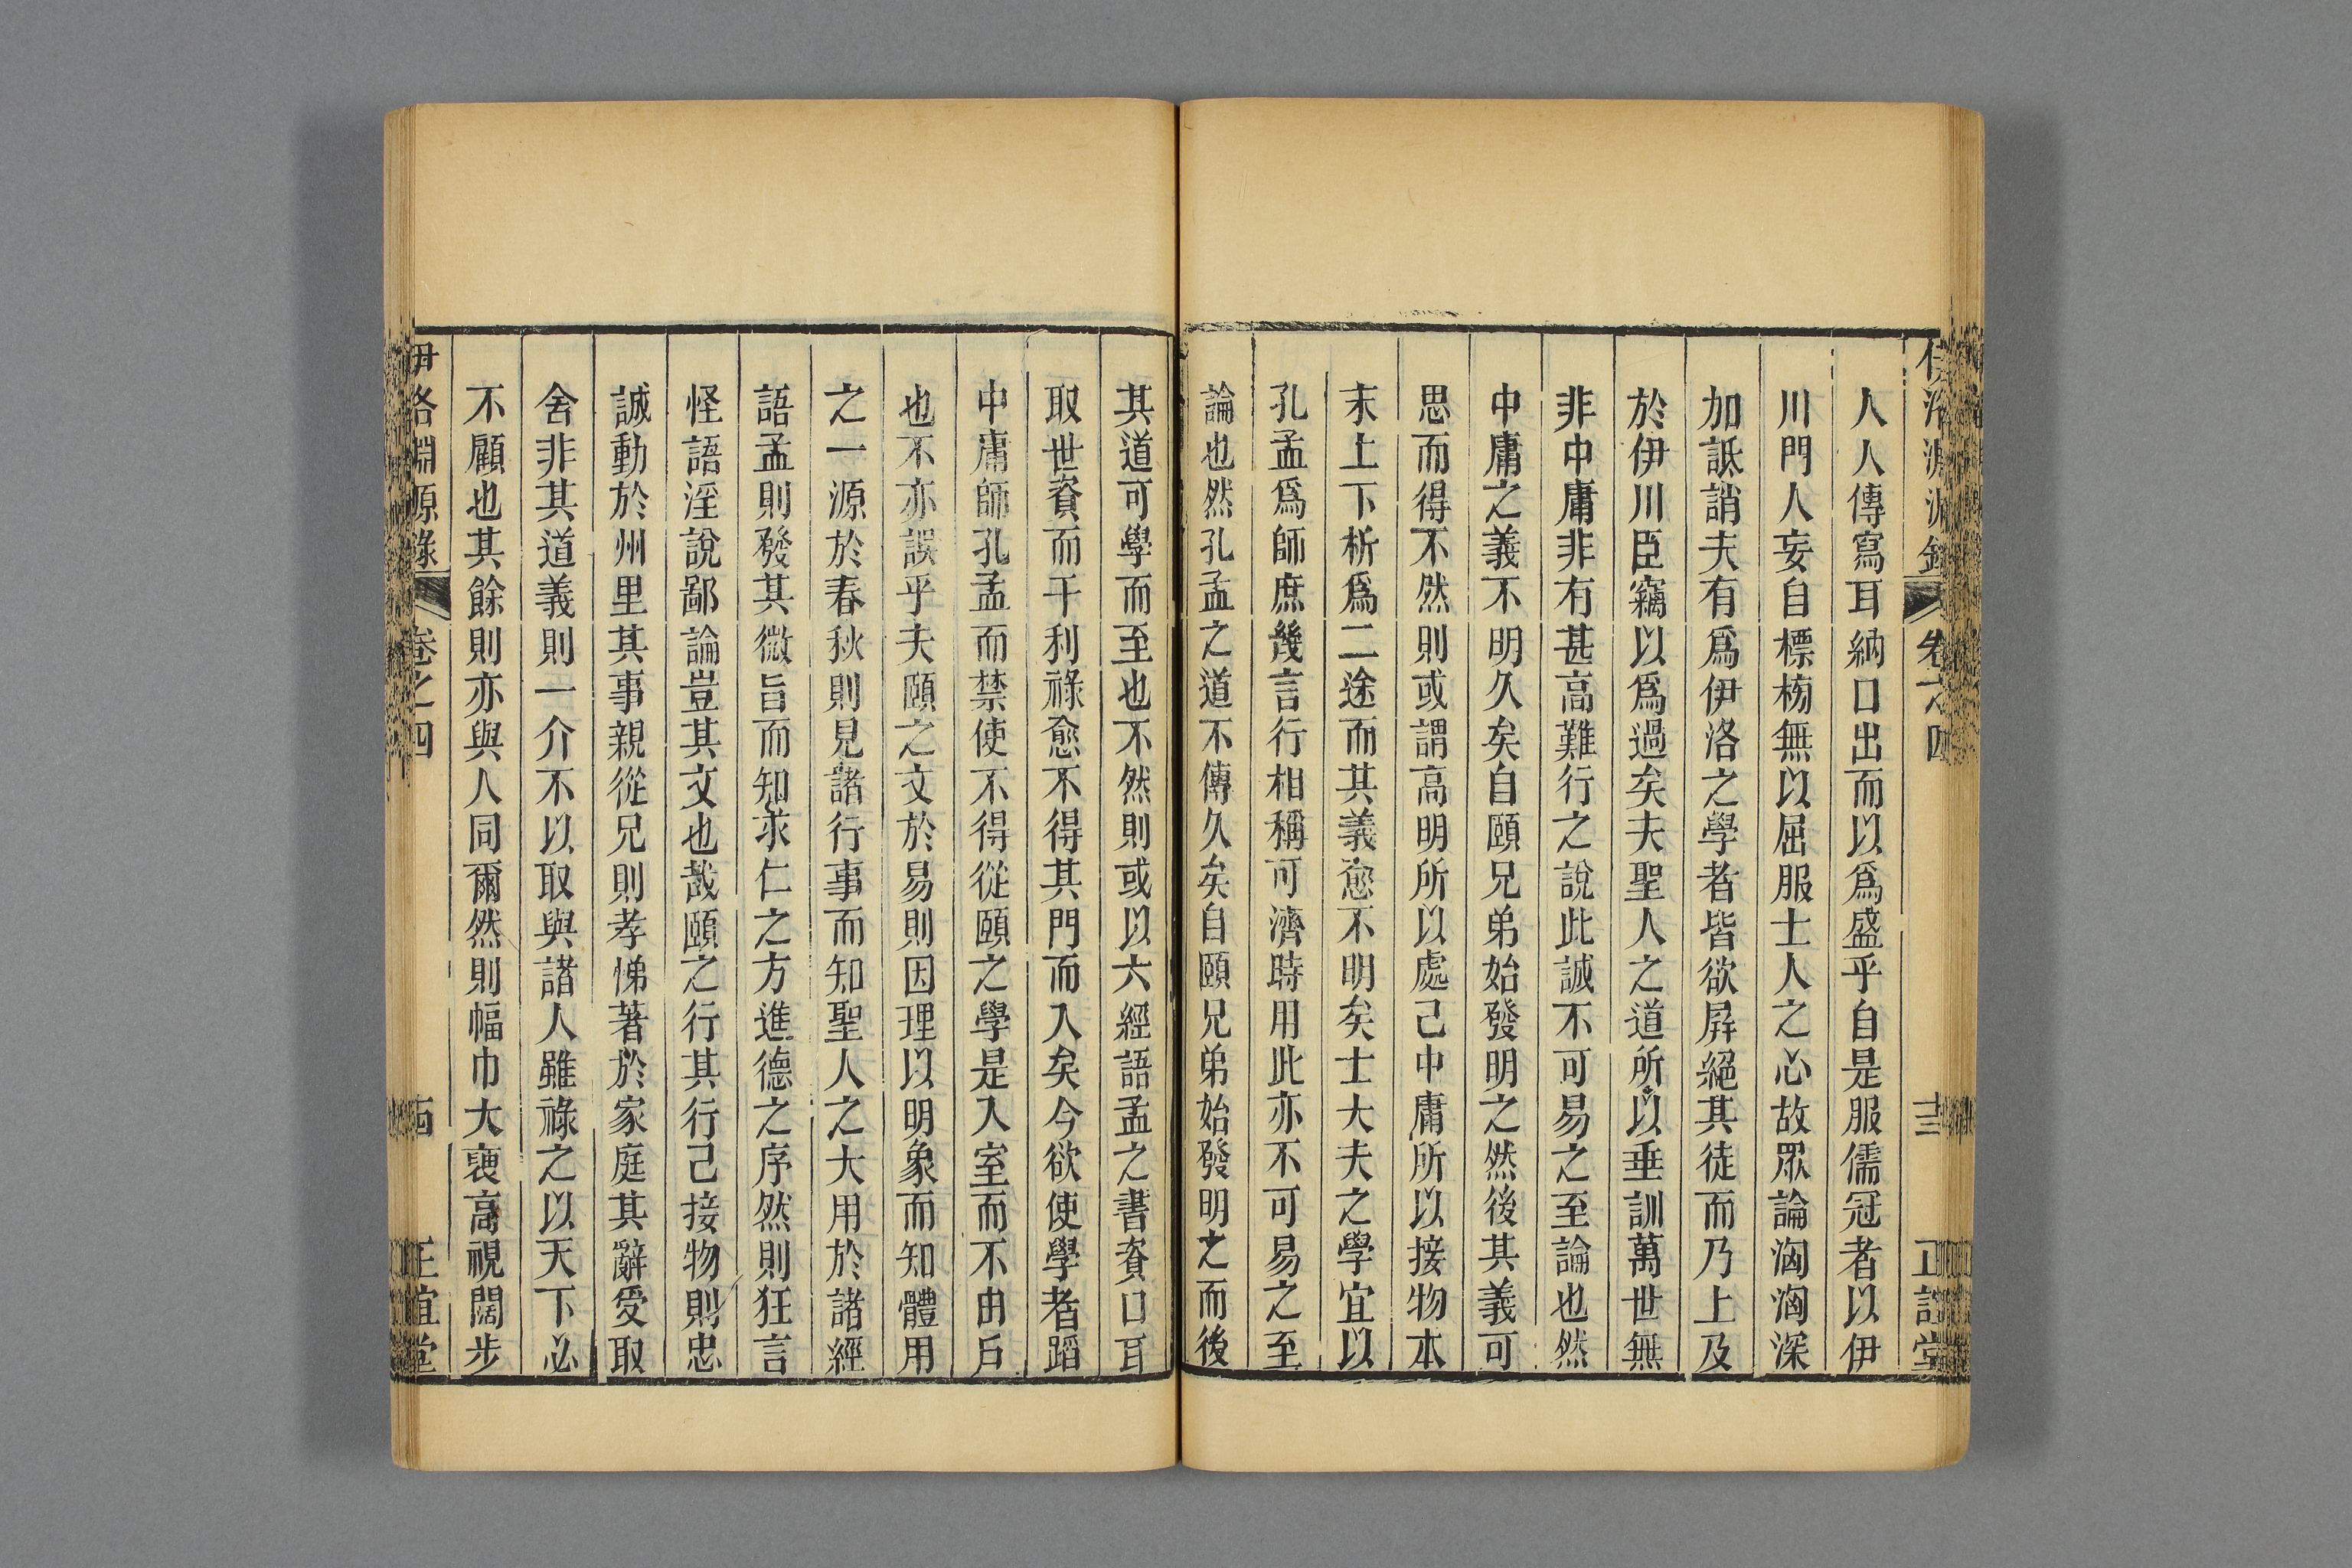 人人傳寫耳納口出而以爲盛乎自是服儒冠者以伊
川門人妄自標榜無以屈服士人之心故眾論洶洶深
加詆誚夫有爲伊洛之學者皆欲屏絕其徒而乃上及
於伊川臣竊以爲過矣夫聖人之道所以垂訓萬世無
非中庸非有甚高難行之說此誠不可易之至論也然
中庸之義不明久矣自頤兄弟始發明之然後其義可
思而得不然則或謂高明所以處己中庸所以接物本
末上下析爲二途而其義愈不明矣士大夫之學宜以
孔孟爲師庶幾言行相稱可濟時用此亦不可易之至
論也然孔孟之道不傳久矣自頤兄弟始發明之而後
其道可學而至也不然則或以六經語孟之書資口耳
取世資而干利祿愈不得其門而入矣今欲使學者蹈
中庸師孔孟而禁使不得從頤之學是入室而不由戶
也不亦誤乎夫頤之文於易則因理以明象而知體用
之一源於春秋則見諸行事而知聖人之大用於諸經
語孟則發其微旨而知求仁之方進德之序然則狂言
怪語淫說鄙論豈其文也哉頤之行其行己接物則忠
誠動於州里其事親從兄則孝悌著於家庭其辭受取
舍非其道義則一介不以取與諸人雖祿之以天下必
不顧也其餘則亦與人同爾然則幅巾大袖高視闊步
伊洛淵源錄
卷之四
正誼堂